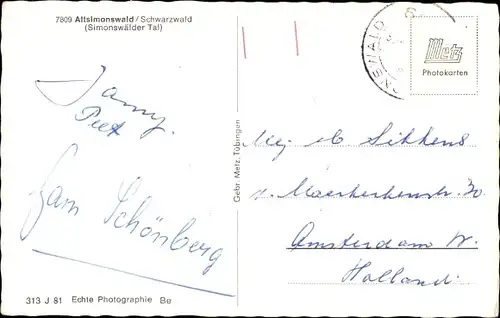 7809 Altsimonswald / Schwarzwald
(Simonswälder Tal)
Metz
Photokarten
Janny.
Piet
Fam Schönberg
Gebr. Metz, Tübingen
Mej
Sikkens
30
Amsterdam W.
Holland.
313 J 81 Echte Photographie Be